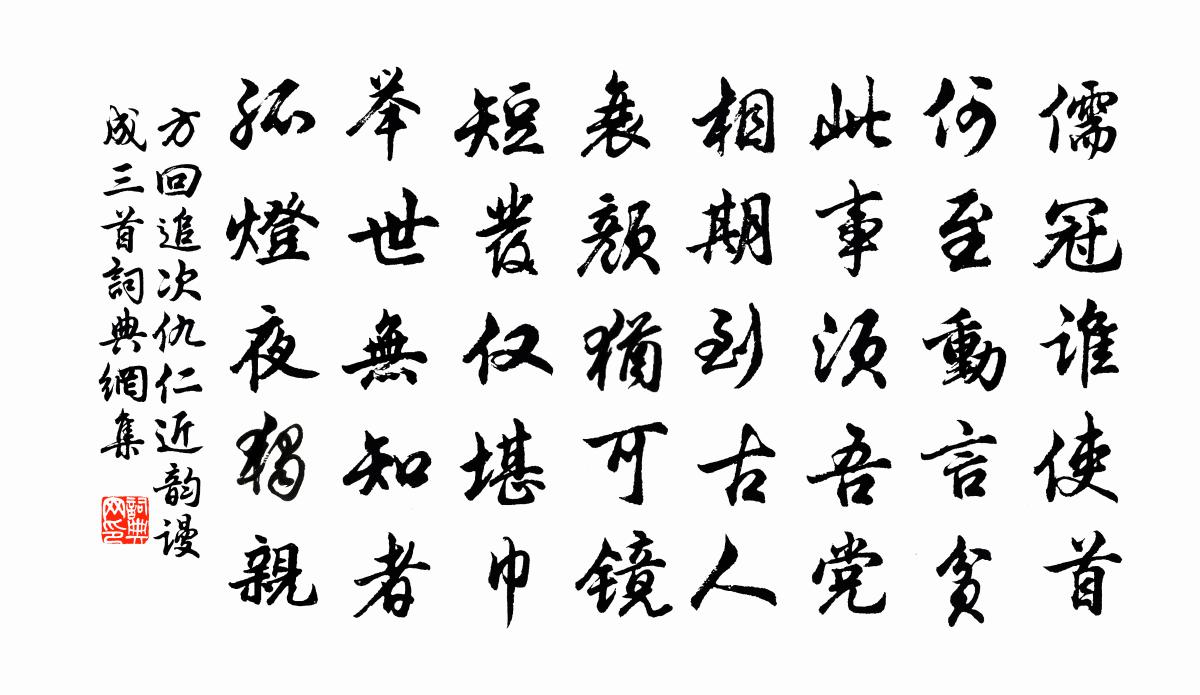 儒冠谁使首
何至動言貧
此事须吾党
相期到古人
衰颜猶可镜
短发仅堪巾
举世無知者
孤燈夜獨親
方回追次仇仁近韵谩
成三首詞典網集
詞典網印